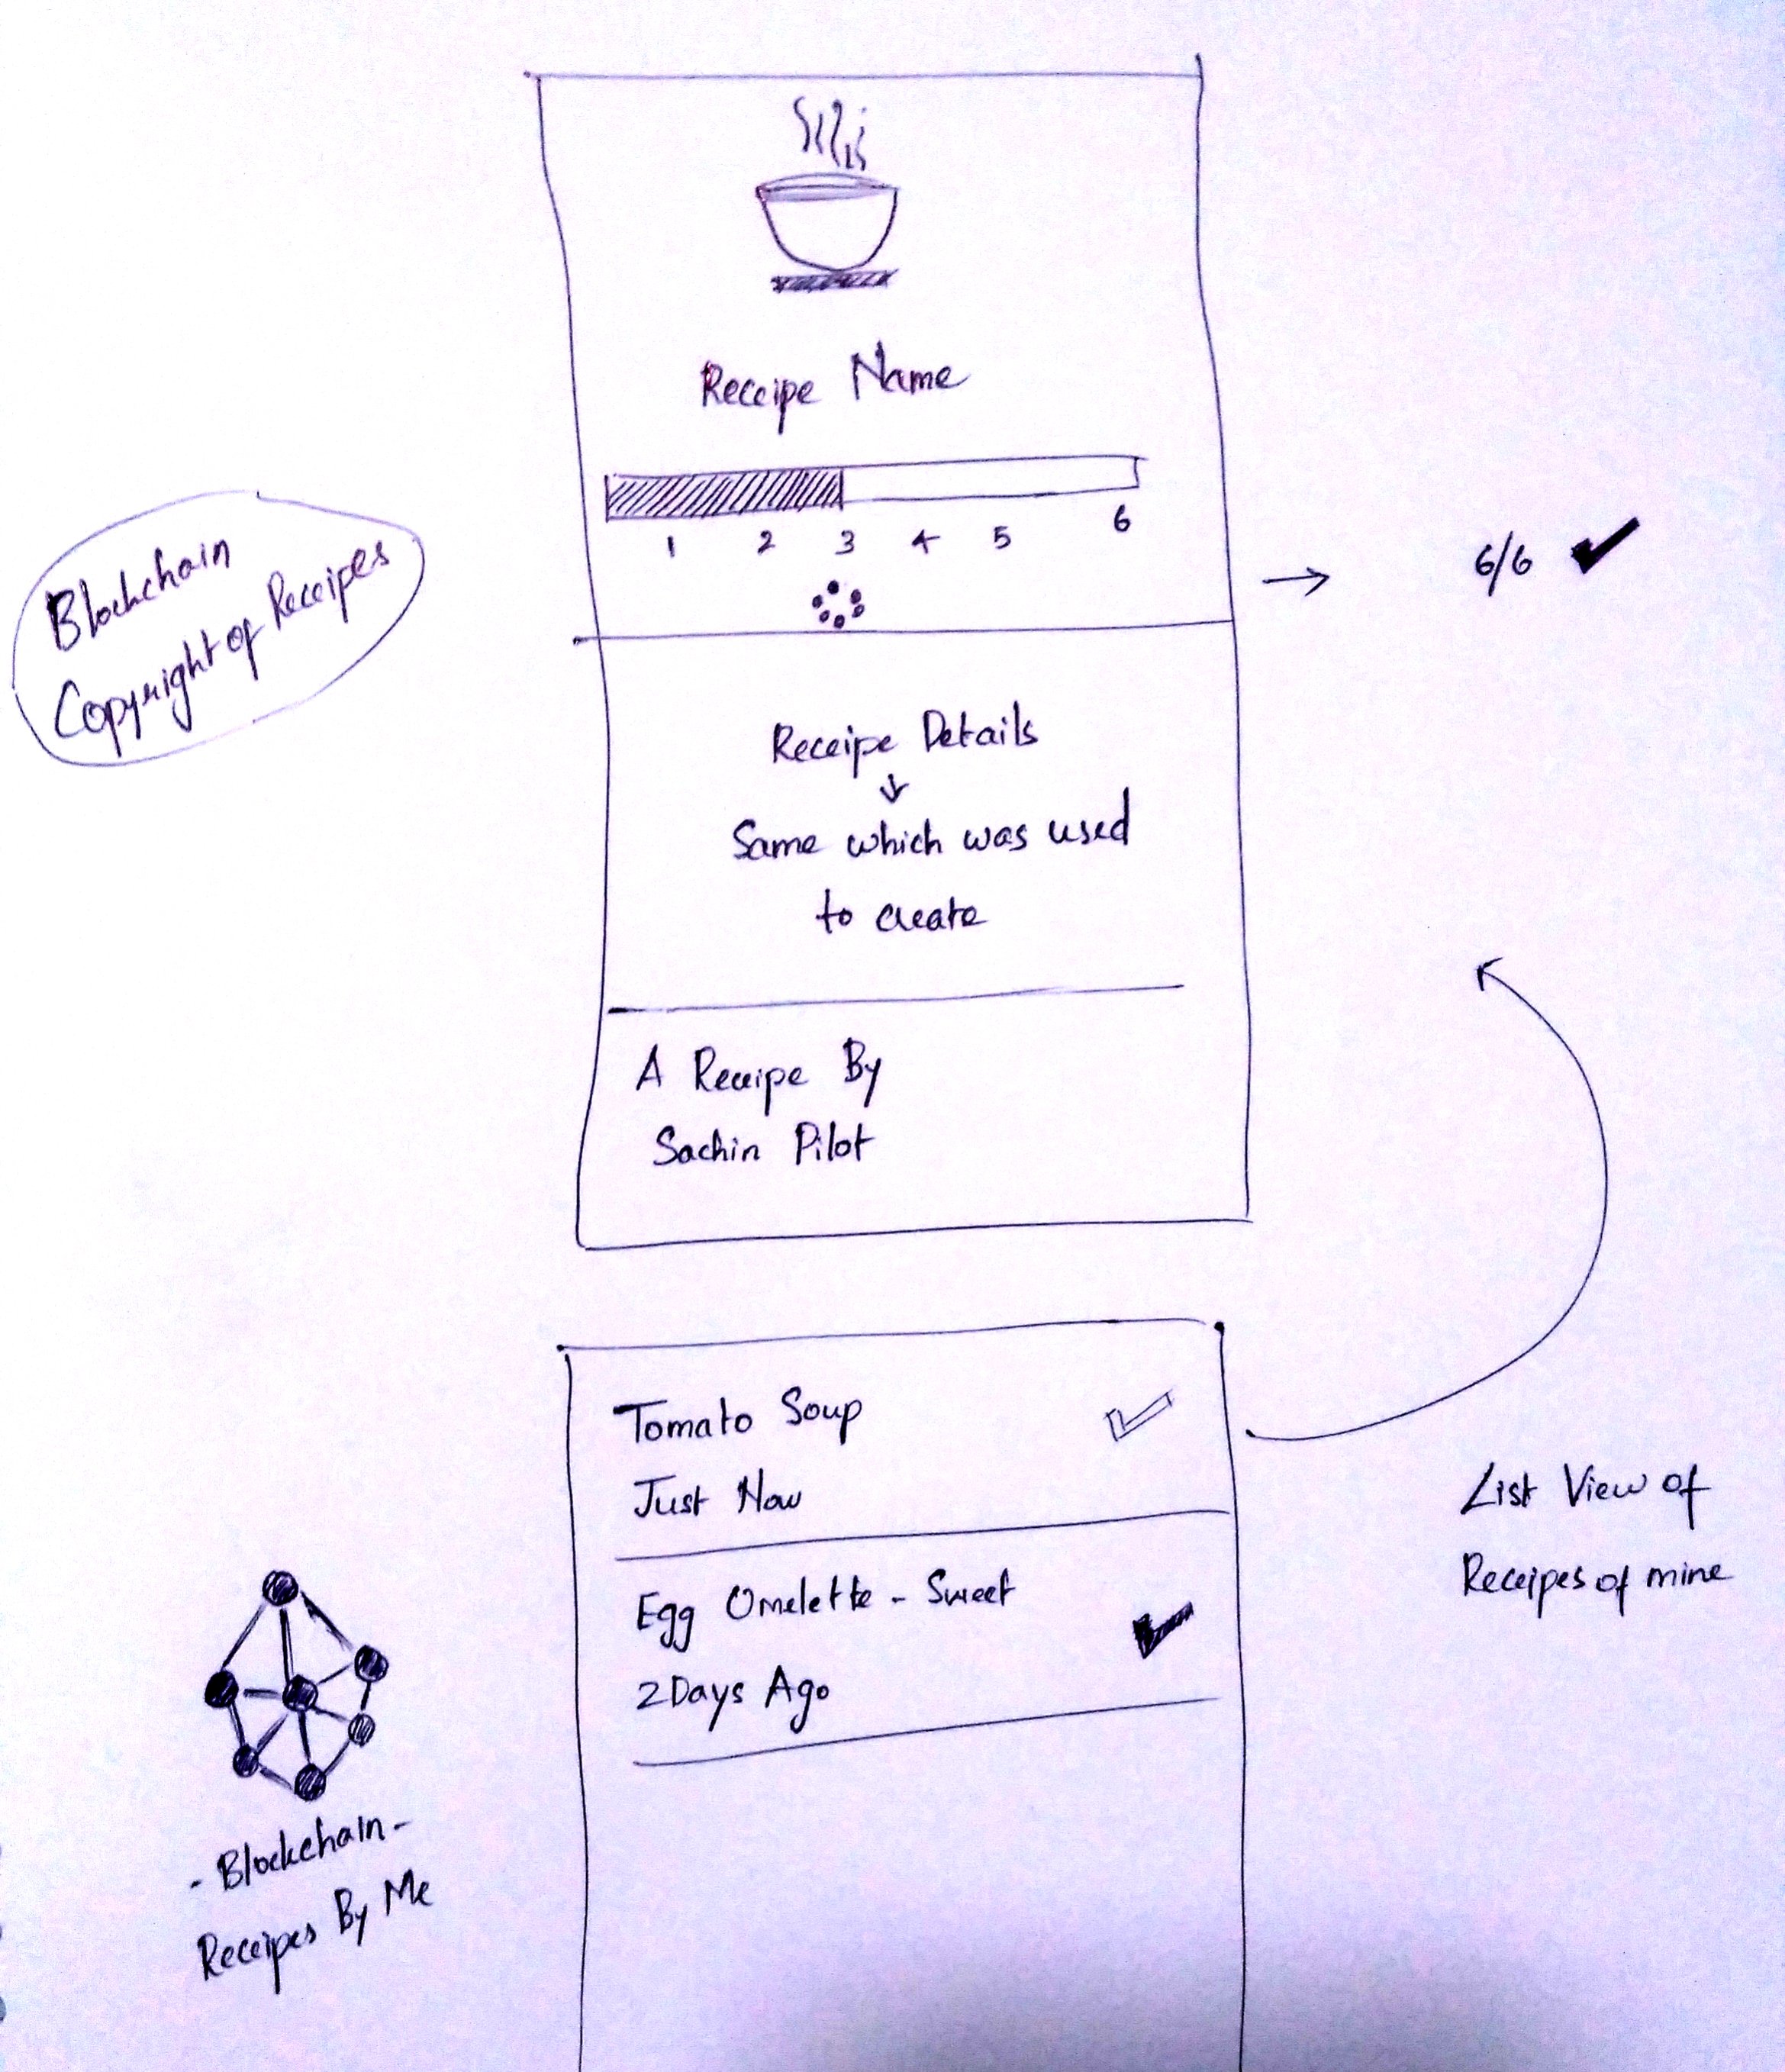 Receipe Name
1 2 3 4 5 6
6/6
Blockchain
Copyright of Receipes
Receipe Details
Same which was used
to create
A Receipe By
Sachin Pilot
Tomato Soup
Just Now
Egg Omelette - Sweet
2Days Ago
List View of
Receipes of mine
- Blockchain -
Receipes By Me